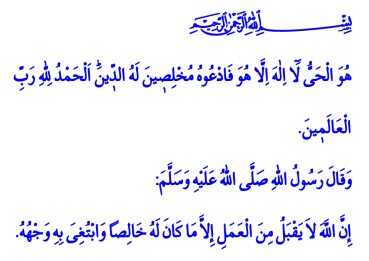 بِسْمِ اللهِ الرَّحْمٰنِ الرَّحِيمِ
هُوَ الْحَيُّ لَٓا اِلٰهَ اِلَّا هُوَ فَادْعُوهُ مُخْلِص۪ينَ لَهُ الدّ۪ينَۜ اَلْحَمْدُ لِلّٰهِ رَبِّ
الْعَالَم۪ينَ.
وَقَالَ رَسُولُ اللهِ صَلَّى اللهُ عَلَيْهِ وَسَلَّمَ:
إِنَّ اللّٰهَ لاَ يَقْبَلُ مِنَ الْعَمَلِ إِلاَّ مَا كَانَ لَهُ خَالِصًا وَابْتُغِىَ بِهِ وَجْهُهُ.